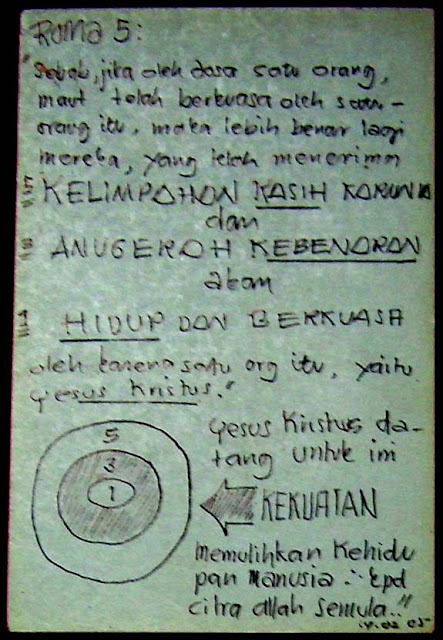 Roma 5:
"Sebab, jika oleh dosa satu orang,
maut telah berkuasa oleh satu-
orang itu, maka lebih benar lagi
mereka, yang telah menerima
KELIMPAHAN KASIH KARUNIA
dan
ANUGERAH KEBENARAN
akan
HIDUP DAN BERKUASA
oleh karena satu org itu, yaitu
Yesus Kristus."
5
3
1
Yesus Kristus da-
tang untuk ini
KEKUATAN
Memulihkan Kehidu
pan Manusia ∴ kpd
citra allah semula.."